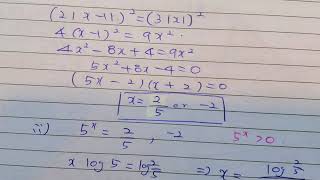 (2|x-1|)² = (3|x|)²
4(x-1)² = 9x²
4x² - 8x + 4 = 9x²
5x² + 8x - 4 = 0
(5x - 2)(x + 2) = 0
x = 2/5 or -2
ii) 5ˣ = 2/5, -2 5ˣ > 0
x log 5 = log 2/5 ⇒ x = log 2/5